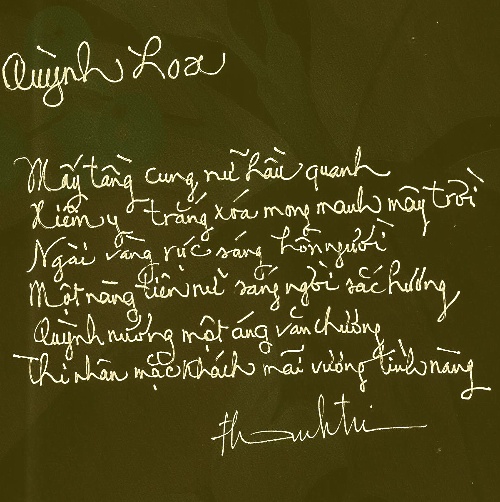 Quỳnh Hoa
Mấy tầng cung nữ hầu quanh
Xiêm y trắng xóa mong manh mây trời
Ngai vàng rực sáng hồn người
Một nàng tiên nữ sáng ngời sắc hương
Quỳnh nương một áng văn chương
Thi nhân mặc khách mãi vương tình nàng
thanh tri